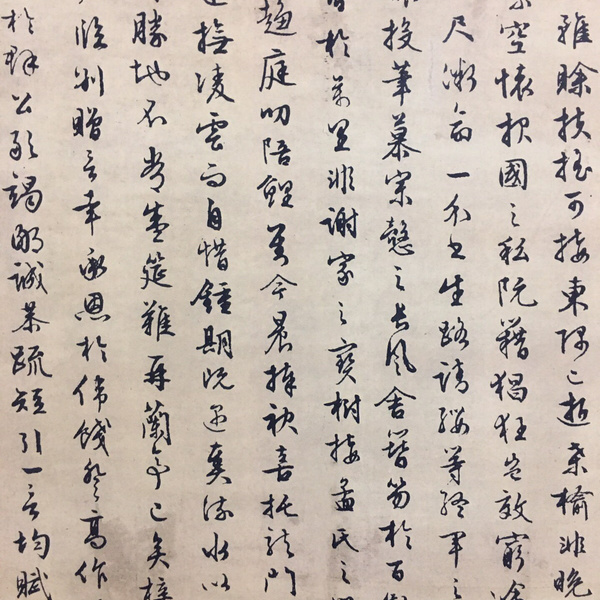 雖賒扶搖可接東隅已逝桑榆非晚
空懷報國之私阮籍猖狂豈效窮途
尺微命一介書生路請纓等終軍之
投筆慕宗愨之長風舍簪笏於百
於萬里非謝家之寶樹接孟氏之
趨庭叨陪鯉對今晨捧袂喜托龍門
撫凌雲而自惜鍾期既遇奏流水以
勝地不常盛筵難再蘭亭已矣梓
臨別贈言幸承恩於偉餞登高作
於群公敢竭鄙誠恭疏短引一言均賦